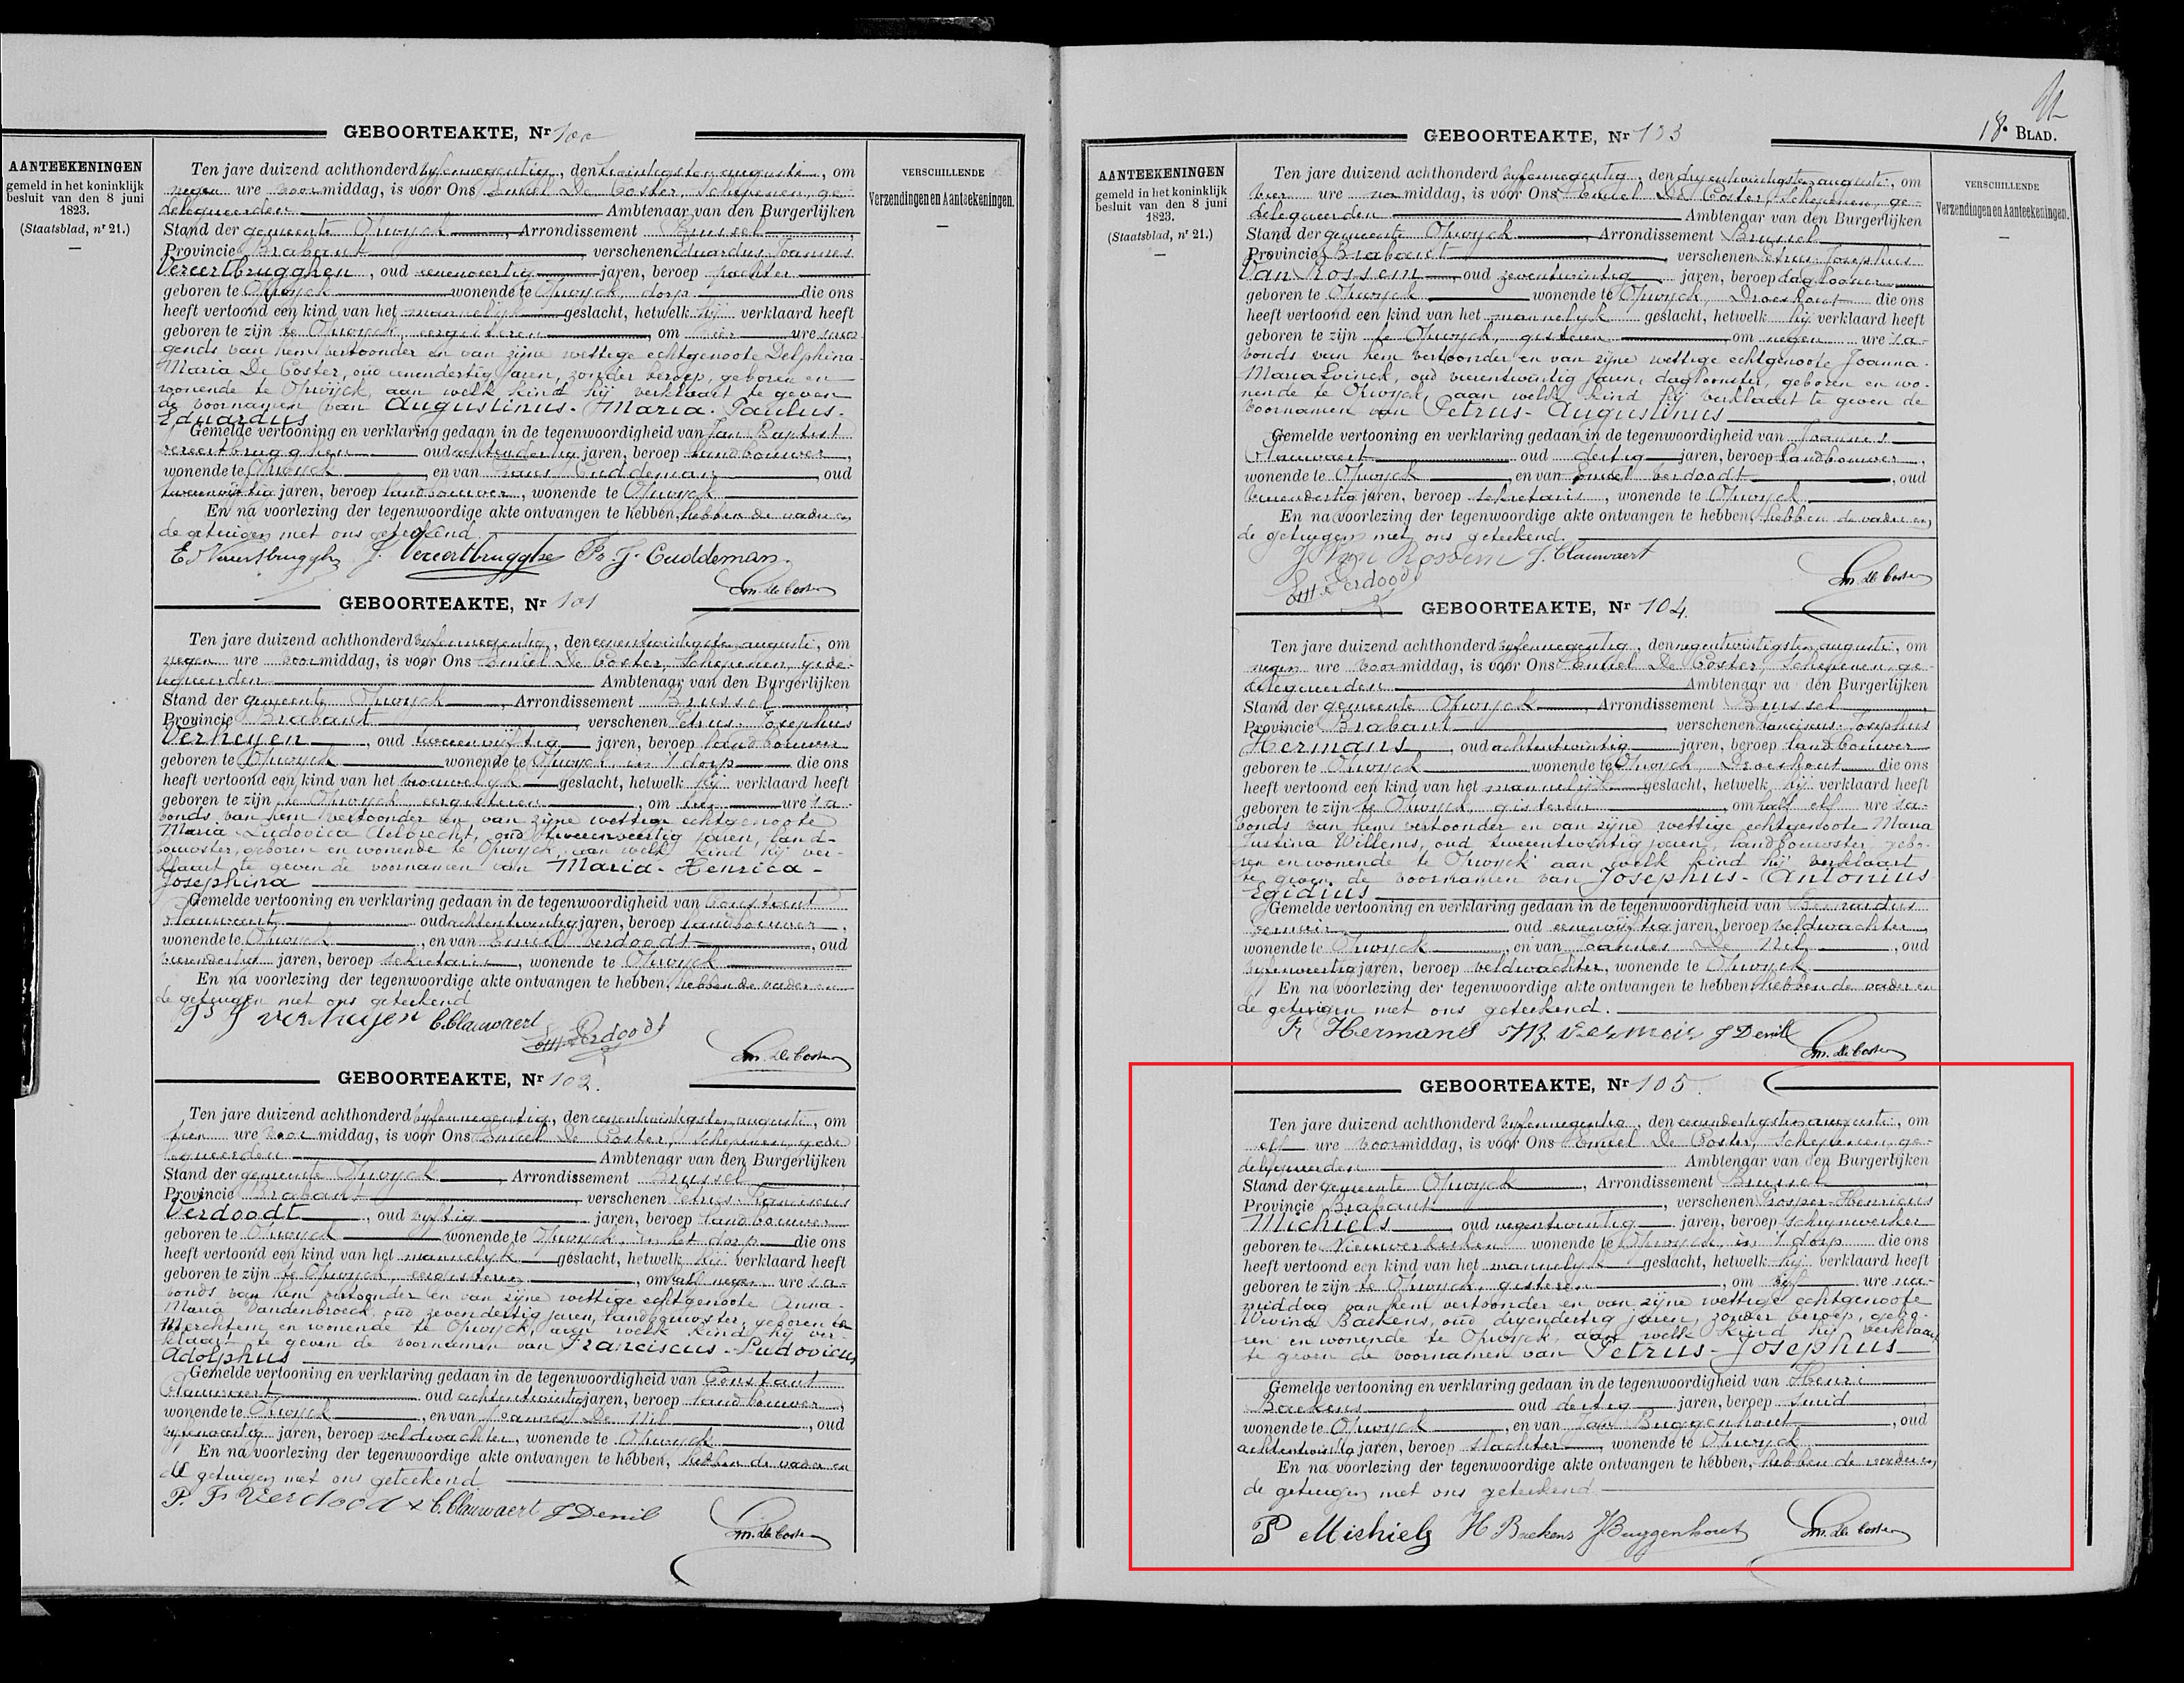 GEBOORTEAKTE, Nr 100
AANTEEKENINGEN
gemeld in het koninklijk
besluit van den 8 juni
1823.
(Staatsblad, nr 21.)
Ten jare duizend achthonderd vyfennegentig, den twintigsten augusti, om
negen ure voormiddag, is voor Ons Emiel De Coster, Schepenen, ge-
delegueerden Ambtenaar van den Burgerlijken
Stand der gemeente Opwyck, Arrondissement Brussel,
Provincie Brabant, verschenen Eduardus Joannes
Vereertbrugghen, oud eenenveertig jaren, beroep pachter
geboren te Opwyck wonende te Opwyck, dorp die ons
heeft vertoond een kind van het mannelyk geslacht, hetwelk hij verklaard heeft
geboren te zijn te Opwyck, eergisteren, om vier ure mor
gends van hem vertoonder en van zijne wettige echtgenoote Delphina
Maria De Coster, oud eenendertig jaren, zonder beroep, geboren en
wonende te Opwyck, aan welk kind hij verklaart te geven
de voornamen van Augustinus-Maria-Paulus-
Eduardus
Gemelde vertooning en verklaring gedaan in de tegenwoordigheid van Jan Baptist
Vereertbrugghen oud achtendertig jaren, beroep landbouwer,
wonende te Opwyck, en van Frans Cuddeman, oud
tweeenvijftig jaren, beroep landbouwer, wonende te Opwyck
En na voorlezing der tegenwoordige akte ontvangen te hebben, hebben de vader en
de getuigen met ons geteekend.
E J Vereertbrugghe J. Vereertbrugghe Fr. J. Cuddeman
Em. de Coster
GEBOORTEAKTE, Nr 101
Ten jare duizend achthonderd vyfennegentig, den eenentwintigsten augusti, om
negen ure voormiddag, is voor Ons Emiel De Coster, Schepenen, gede-
legueerden Ambtenaar van den Burgerlijken
Stand der gemeente Opwyck, Arrondissement Brussel,
Provincie Brabant, verschenen Petrus-Josephus
Verheyen, oud tweeenvijftig jaren, beroep landbouwer
geboren te Opwyck wonende te Opwyck, in 't dorp die ons
heeft vertoond een kind van het vrouwelyk geslacht, hetwelk hij verklaard heeft
geboren te zijn te Opwyck eergisteren, om ure 's a-
vonds van hem vertoonder en van zijne wettige echtgenoote
Maria Ludovica Aelbrecht, oud tweeenveertig jaren, land-
bouwster, geboren en wonende te Opwyck, aan welk kind hij ver-
klaart te geven de voornamen van Maria-Henrica-
Josephina
Gemelde vertooning en verklaring gedaan in de tegenwoordigheid van Constant
Clauwaert oud achtentwintig jaren, beroep landbouwer,
wonende te Opwyck, en van Emiel Verdoodt, oud
vierendertig jaren, beroep sekretaris, wonende te Opwyck
En na voorlezing der tegenwoordige akte ontvangen te hebben, hebben de vader en
de getuigen met ons geteekend
P J Verheyen C. Clauwaert Em. Verdoodt
Em. de Coster
GEBOORTEAKTE, Nr 102.
Ten jare duizend achthonderd vyfennegentig, den eenentwintigsten augusti, om
tien ure voormiddag, is voor Ons Emiel De Coster, Schepenen, gede
legueerden Ambtenaar van den Burgerlijken
Stand der gemeente Opwyck, Arrondissement Brussel
Provincie Brabant, verschenen Petrus-Franciscus
Verdoodt, oud vyftig jaren, beroep landbouwer
geboren te Opwyck wonende te Opwyck, in het dorp die ons
heeft vertoond een kind van het mannelyk geslacht, hetwelk hij verklaard heeft
geboren te zijn te Opwyck, eergisteren, om half negen ure 's a-
vonds van hem vertoonder en van zijne wettige echtgenoote Anna-
Maria Vandenbroeck, oud zevendertig jaren, landbouwster, geboren te
Merchtem en wonende te Opwyck, aan welk kind hij ver-
klaart te geven de voornamen van Franciscus-Ludovicus
Adolphus
Gemelde vertooning en verklaring gedaan in de tegenwoordigheid van Constant
Clauwaert oud achtentwintig jaren, beroep landbouwer,
wonende te Opwyck, en van Joannes De Nil, oud
vyfenveertig jaren, beroep veldwachter, wonende te Opwyck
En na voorlezing der tegenwoordige akte ontvangen te hebben, hebben de vader en
de getuigen met ons geteekend
P. Fr Verdoodt C. Clauwaert J Denil
Em. de Coster
VERSCHILLENDE
Verzendingen en Aanteekeningen.
18e BLAD.
GEBOORTEAKTE, Nr 103
AANTEEKENINGEN
gemeld in het koninklijk
besluit van den 8 juni
1823.
(Staatsblad, nr 21.)
Ten jare duizend achthonderd vyfennegentig, den dryentwintigsten augusti, om
vier ure namiddag, is voor Ons Emiel De Coster, Schepenen, ge-
delegueerden Ambtenaar van den Burgerlijken
Stand der gemeente Opwyck, Arrondissement Brussel
Provincie Brabant, verschenen Petrus-Josephus
Van Rossem, oud zeventwintig jaren, beroep daglooner
geboren te Opwyck wonende te Opwyck, Droeshout die ons
heeft vertoond een kind van het mannelyk geslacht, hetwelk hij verklaard heeft
geboren te zijn te Opwyck, gisteren om negen ure 's a-
vonds van hem vertoonder en van zijne wettige echtgenoote Joanna-
Maria Lvinck, oud vierentwintig jaren, dagloonster, geboren en wo-
nende te Opwyck, aan welk kind hij verklaart te geven de
voornamen van Petrus-Augustinus
Gemelde vertooning en verklaring gedaan in de tegenwoordigheid van Joannes
Clauwaert oud dertig jaren, beroep landbouwer,
wonende te Opwyck, en van Emiel Verdoodt, oud
vierendertig jaren, beroep sekretaris, wonende te Opwyck
En na voorlezing der tegenwoordige akte ontvangen te hebben, hebben de vader en
de getuigen met ons geteekend.
J Van Rossem J. Clauwaert
Em. Verdoodt
Em. de Coster
GEBOORTEAKTE, Nr 104.
Ten jare duizend achthonderd vyfennegentig, den negentwintigsten augusti, om
negen ure voormiddag, is voor Ons Emiel De Coster, Schepenen, ge-
delegueerden Ambtenaar va den Burgerlijken
Stand der gemeente Opwyck, Arrondissement Brussel,
Provincie Brabant, verschenen Franciscus-Josephus
Hermans, oud achtentwintig jaren, beroep landbouwer
geboren te Opwyck wonende te Opwyck, Droeshout die ons
heeft vertoond een kind van het mannelyk geslacht, hetwelk hij verklaard heeft
geboren te zijn te Opwyck gisteren, om half elf ure 's a-
vonds van hem vertoonder en van zijne wettige echtgenoote Maria
Justina Willems, oud tweeentwintig jaren, landbouwster, gebo-
ren en wonende te Opwyck aan welk kind hij verklaart
te geven de voornamen van Josephus-Antonius
Egidius
Gemelde vertooning en verklaring gedaan in de tegenwoordigheid van Bernardus
Vermeir oud eenenvijftig jaren, beroep veldwachter,
wonende te Opwyck, en van Joannes De Nil, oud
vyfenveertig jaren, beroep veldwachter, wonende te Opwyck
En na voorlezing der tegenwoordige akte ontvangen te hebben hebben de vader en
de getuigen met ons geteekend.
Fr Hermans B. Vermeir J Denil
Em. de Coster
GEBOORTEAKTE, Nr 105.
Ten jare duizend achthonderd vyfennegentig, den eenendertigsten augusti, om
elf ure voormiddag, is voor Ons Emiel De Coster, Schepenen, ge-
delegueerden Ambtenaar van den Burgerlijken
Stand der gemeente Opwyck, Arrondissement Brussel,
Provincie Brabant, verschenen Prosper-Henricus
Michiels, oud negentwintig jaren, beroep schrynwerker
geboren te Nieuwerkerken wonende te Opwyck, in 't dorp die ons
heeft vertoond een kind van het mannelyk geslacht, hetwelk hij verklaard heeft
geboren te zijn te Opwyck, gisteren, om vijf ure na-
middag van hem vertoonder en van zijne wettige echtgenoote
Wivina Baekens, oud dryendertig jaren, zonder beroep, gebo-
ren en wonende te Opwyck, aan welk kind hij verklaart
te geven de voornamen van Petrus-Josephus
Gemelde vertooning en verklaring gedaan in de tegenwoordigheid van Henri
Baekens oud dertig jaren, beroep smid,
wonende te Opwyck, en van Jan Buggenhout, oud
achtentwintig jaren, beroep slachter, wonende te Opwyck
En na voorlezing der tegenwoordige akte ontvangen te hebben, hebben de vader en
de getuigen met ons geteekend
P Michiels H Baekens J Buggenhout Em. de Coster
VERSCHILLENDE
Verzendingen en Aanteekeningen.